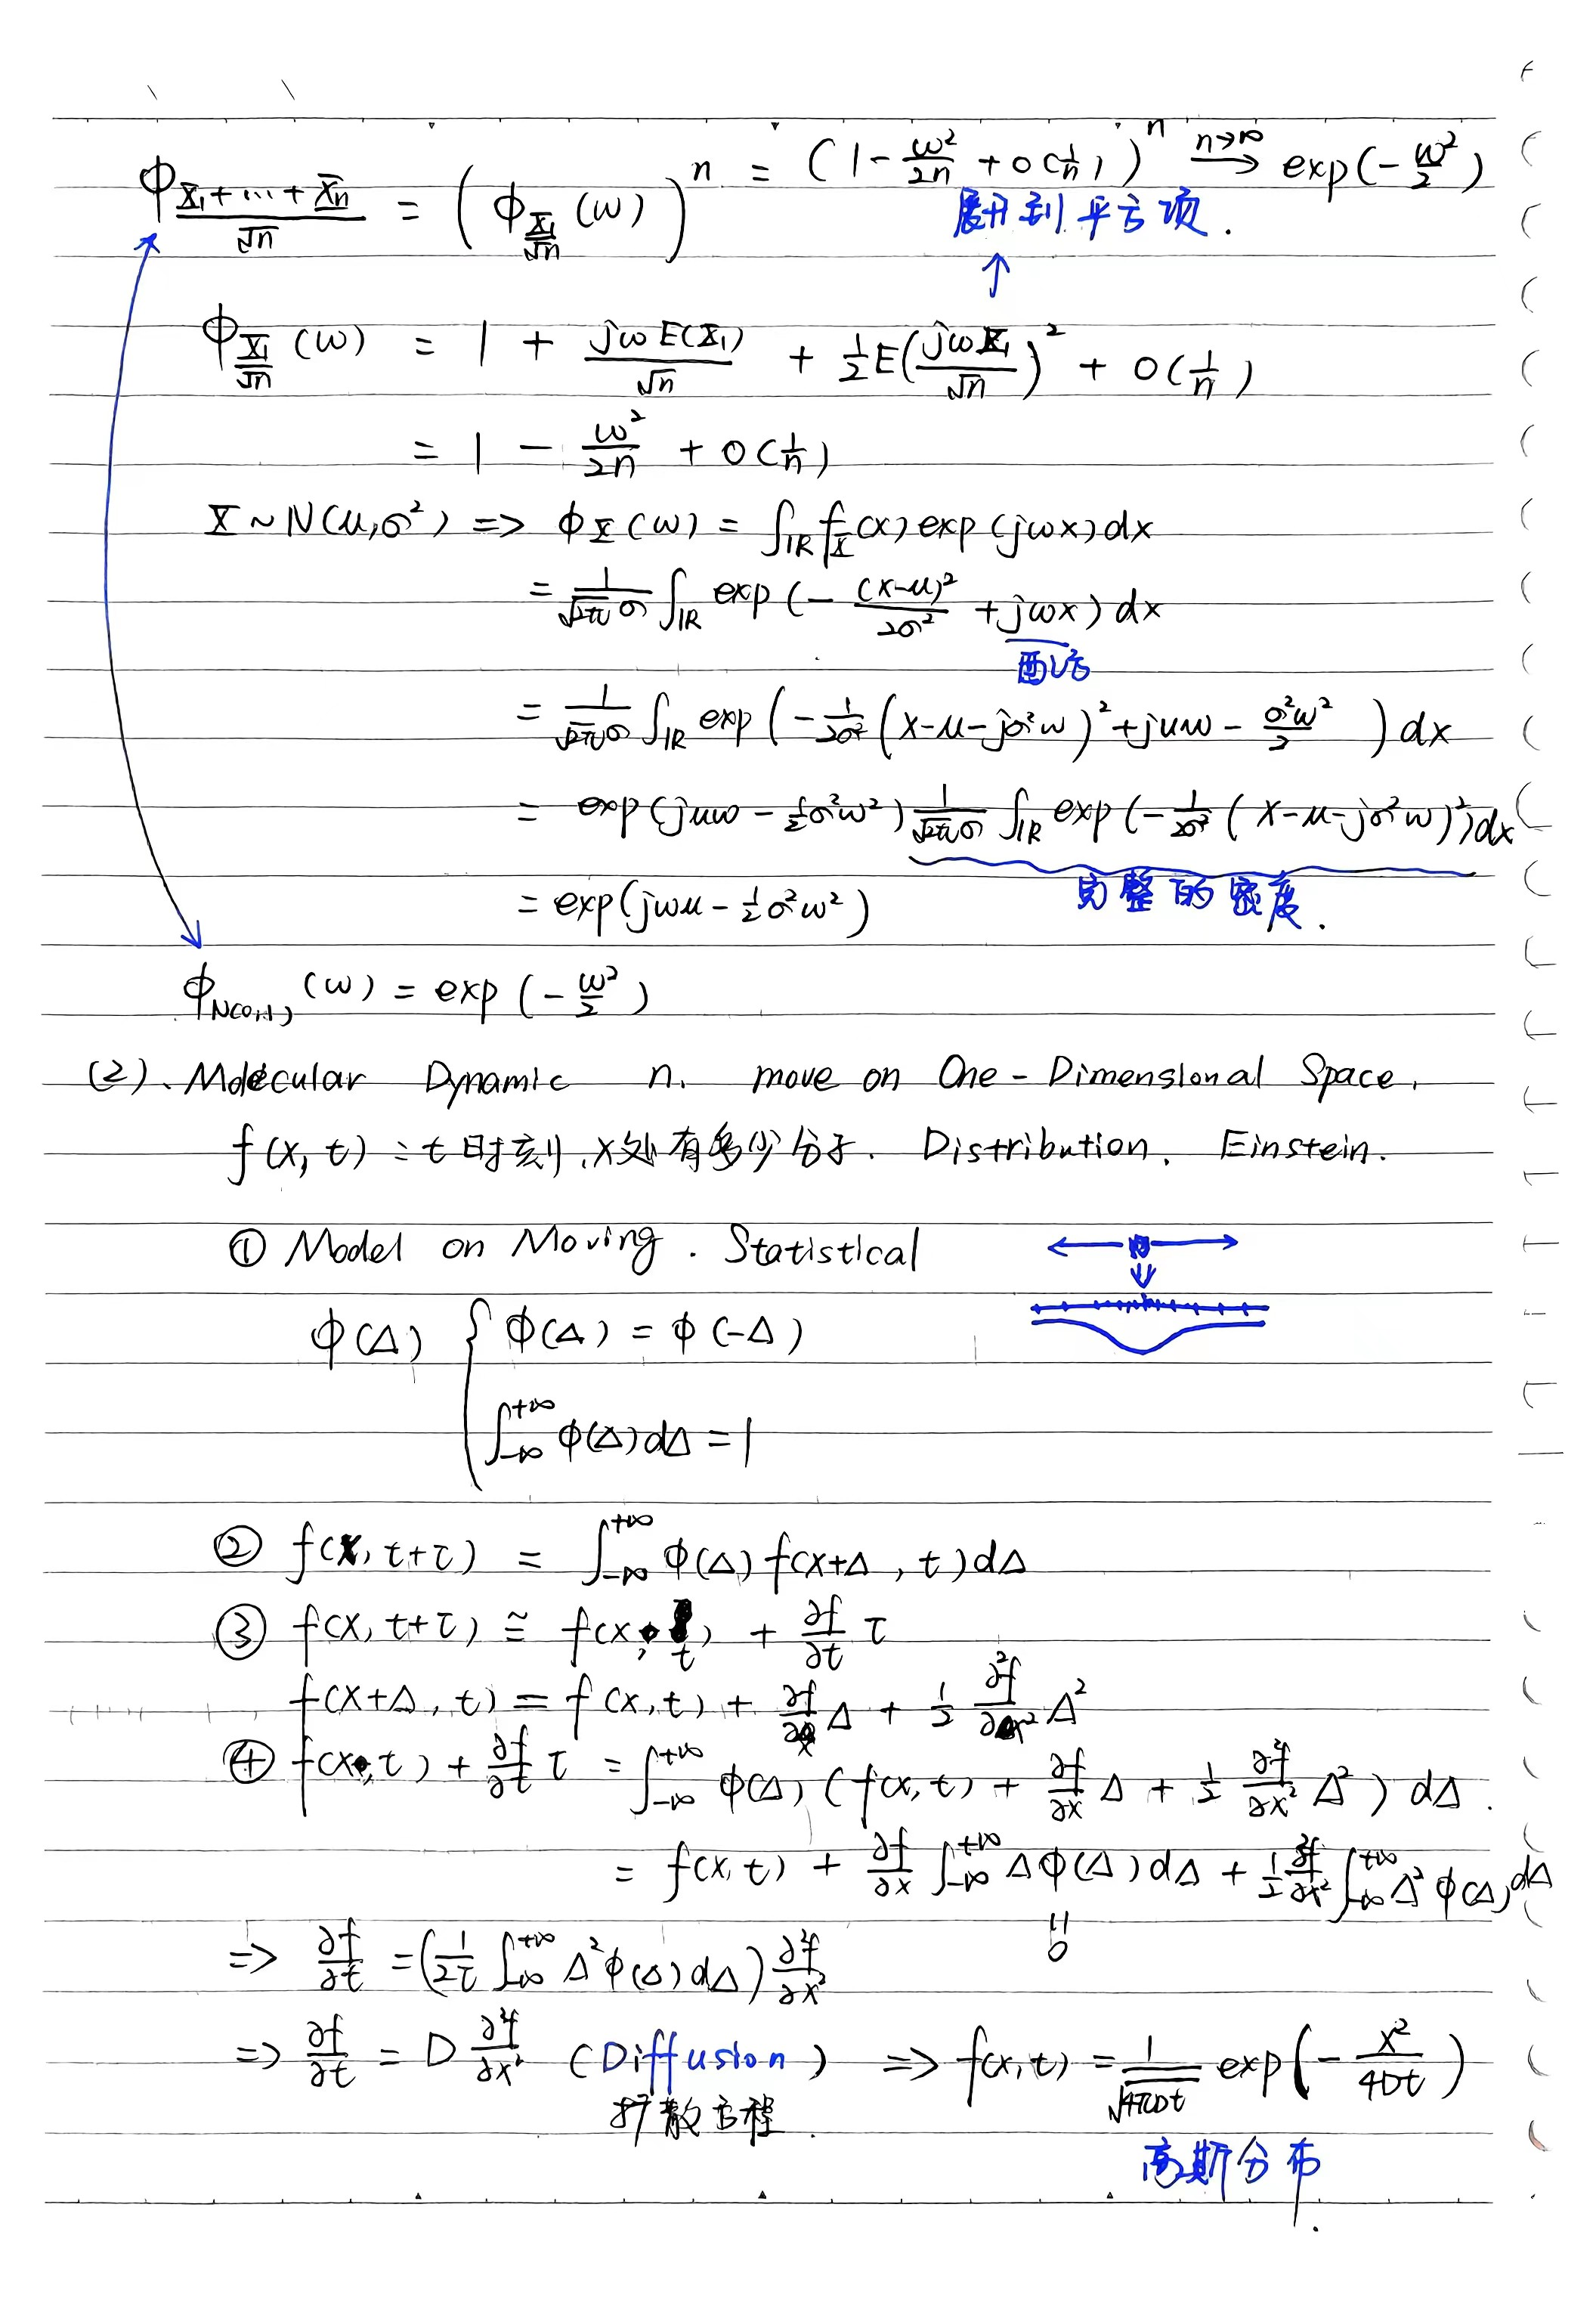 ϕ_{(X₁+⋯+Xₙ)/√n} = (ϕ_{X₁/√n}(ω))ⁿ = (1 - ω²/2n + o(1/n))ⁿ →(n→∞) exp(-ω²/2)
展开到平方项.
ϕ_{X₁/√n}(ω) = 1 + jωE(X₁)/√n + ½E(jωX₁/√n)² + o(1/n)
= 1 - ω²/2n + o(1/n)
X ~ N(μ,σ²) => ϕ_X(ω) = ∫_ℝ f_X(x) exp(jωx)dx
= 1/(√2π σ) ∫_ℝ exp(-(x-μ)²/2σ² + jωx) dx
配方
= 1/(√2π σ) ∫_ℝ exp(-1/2σ² (x-μ-jσ²ω)² + jμω - σ²ω²/2) dx
= exp(jμω - ½σ²ω²) 1/(√2π σ) ∫_ℝ exp(-1/2σ² (x-μ-jσ²ω)²)dx
完整的密度.
= exp(jωμ - ½σ²ω²)
ϕ_{N(0,1)}(ω) = exp(-ω²/2)
(2)、Molecular Dynamic n. move on One-Dimensional Space.
f(x,t) : t时刻,x处有多少分子. Distribution. Einstein.
① Model on Moving. Statistical
ϕ(Δ) { ϕ(Δ) = ϕ(-Δ)
∫_{-∞}^{+∞} ϕ(Δ)dΔ = 1
② f(x, t+τ) = ∫_{-∞}^{+∞} ϕ(Δ) f(x+Δ, t)dΔ
③ f(x, t+τ) ≅ f(x, t) + ∂f/∂t τ
f(x+Δ, t) = f(x,t) + ∂f/∂x Δ + ½ ∂²f/∂x² Δ²
④ f(x,t) + ∂f/∂t τ = ∫_{-∞}^{+∞} ϕ(Δ)(f(x,t) + ∂f/∂x Δ + ½ ∂²f/∂x² Δ²) dΔ.
= f(x,t) + ∂f/∂x ∫_{-∞}^{+∞} Δϕ(Δ)dΔ + ½ ∂²f/∂x² ∫_{-∞}^{+∞} Δ²ϕ(Δ)dΔ
= 0
=> ∂f/∂t = (1/2τ ∫_{-∞}^{+∞} Δ²ϕ(Δ)dΔ) ∂²f/∂x²
=> ∂f/∂t = D ∂²f/∂x² (Diffusion) => f(x,t) = 1/√4πDt exp(-x²/4Dt)
扩散方程.
高斯分布.